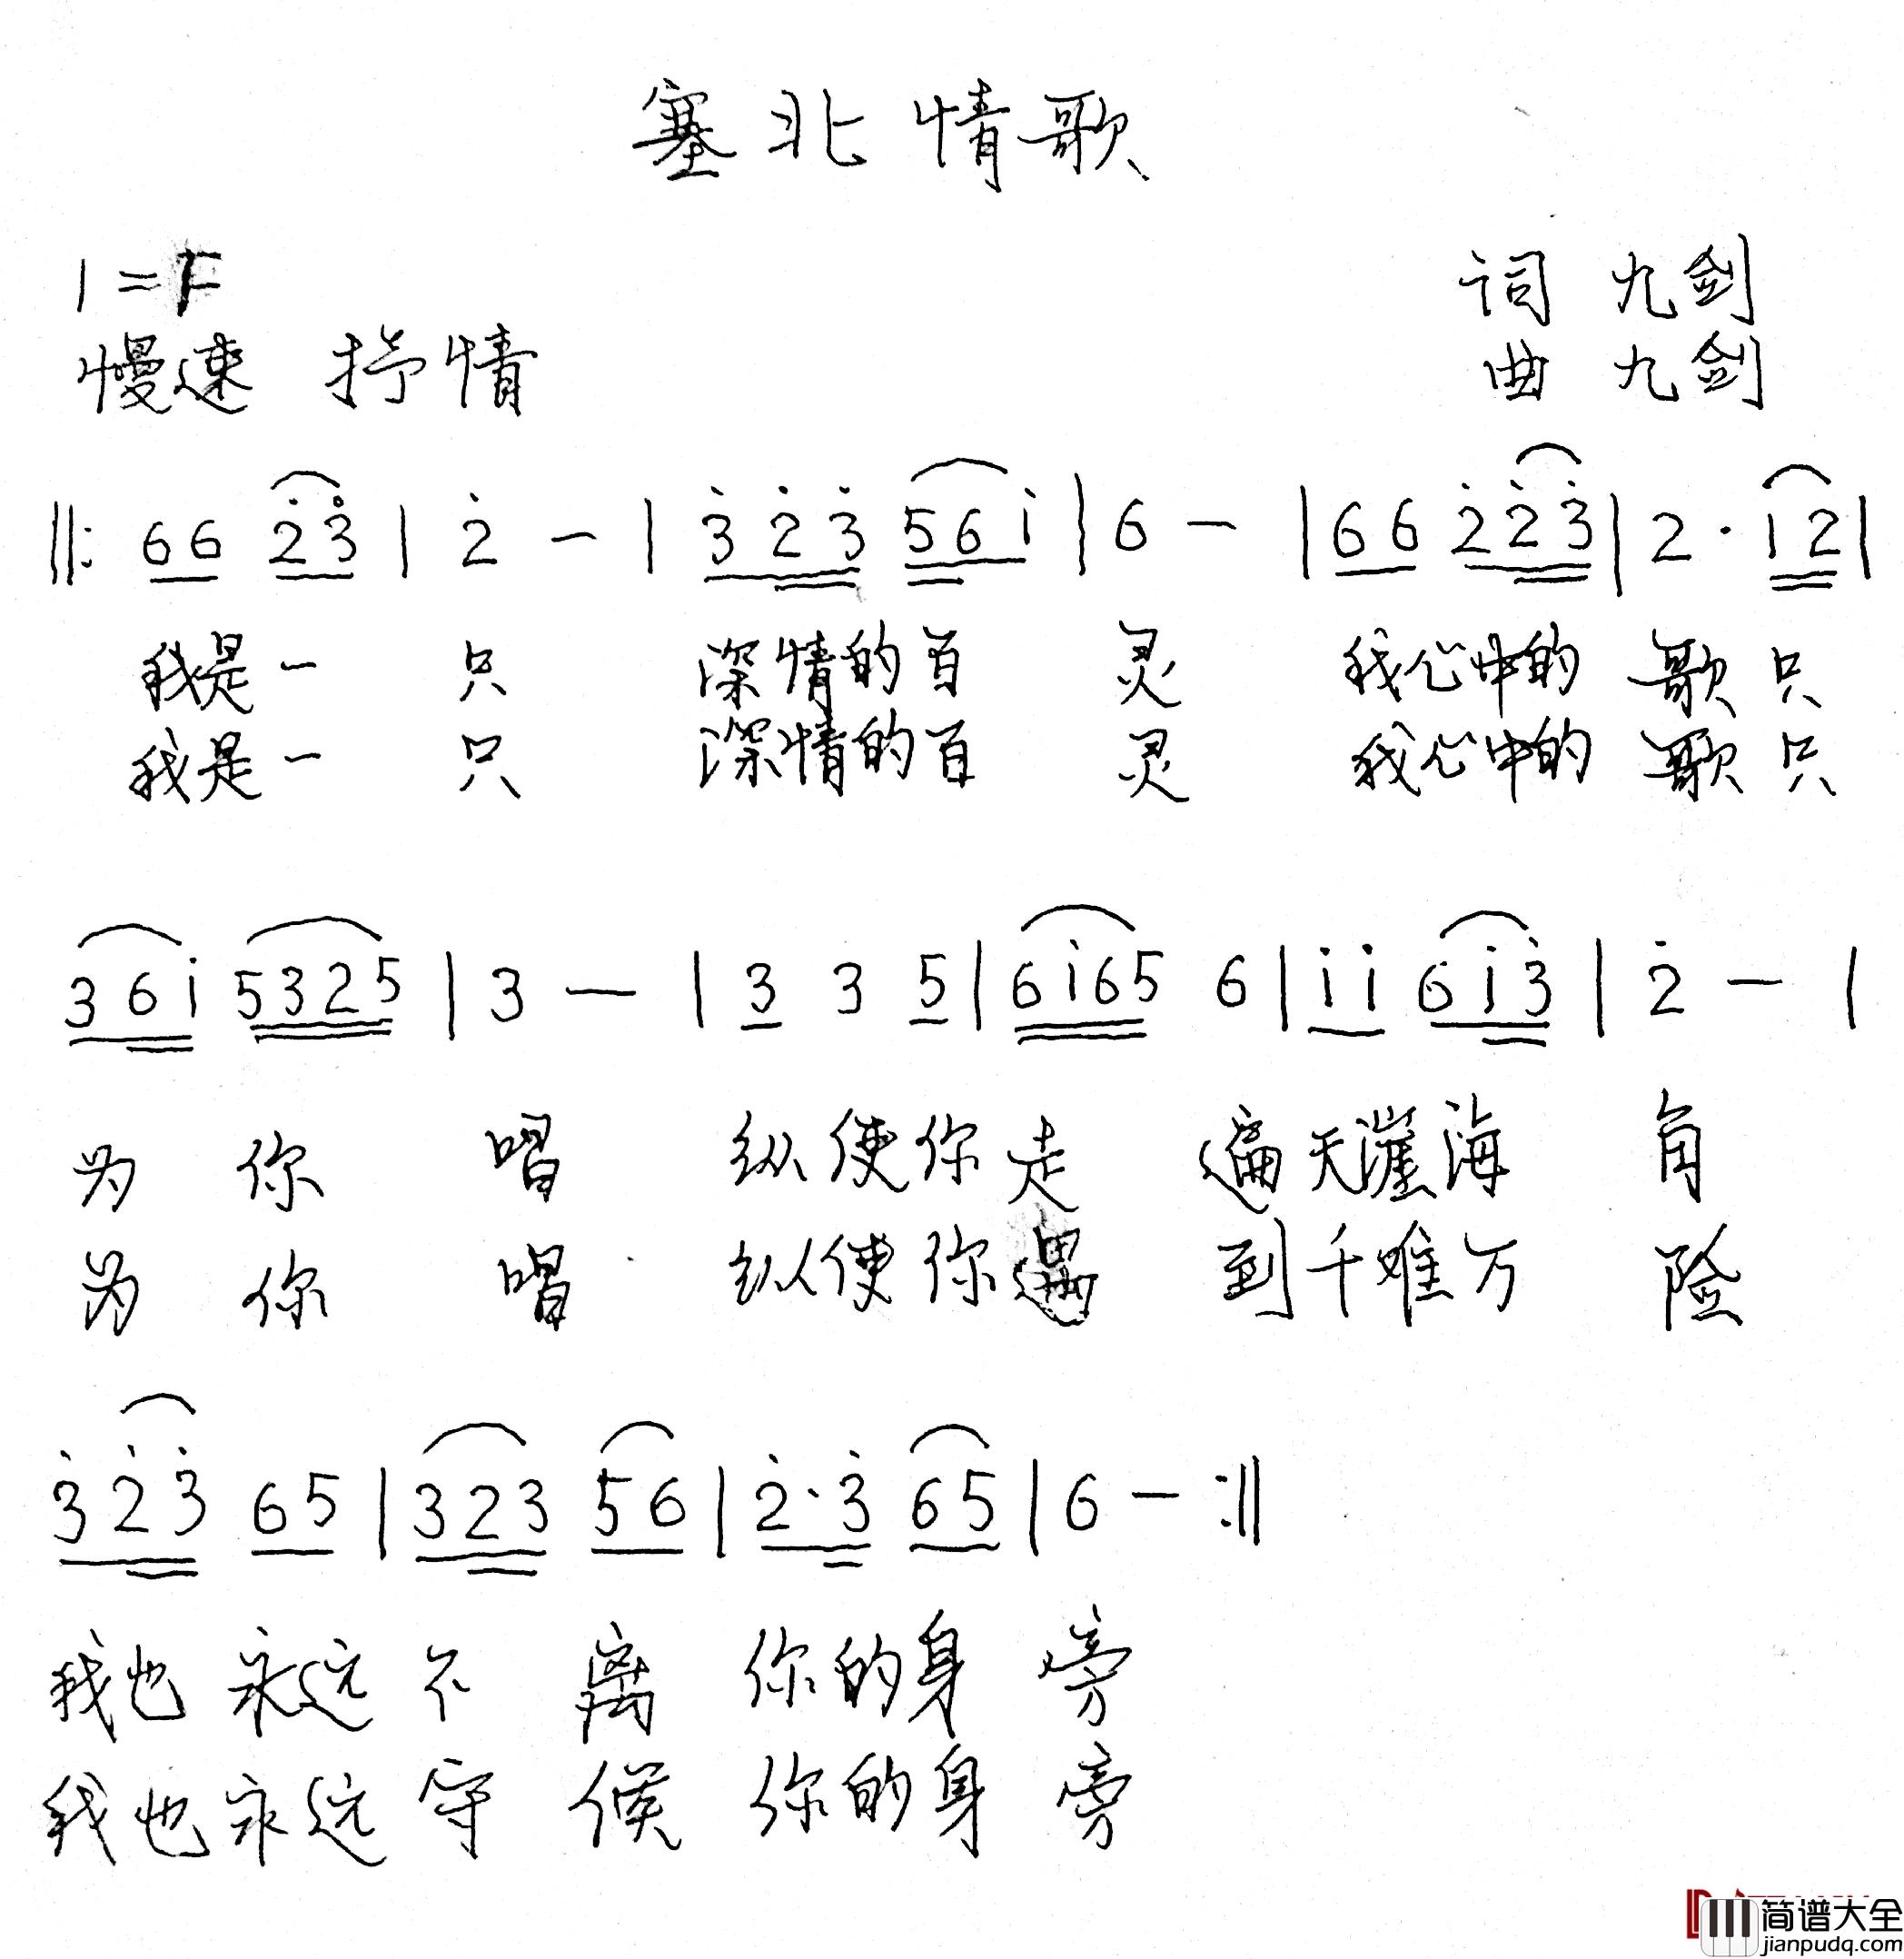 塞北情歌
1=F
词 九剑
慢速 抒情
曲 九剑
‖: 66 2̇3̇ | 2̇ － | 3̇2̇3̇ 561̇ | 6 － | 66 2̇2̇3̇ | 2 · 1̇2 |
我是一 只 深情的百 灵 我心中的 歌只
我是一 只 深情的百 灵 我心中的 歌只
361̇ 5325 | 3 － | 3 3 5 | 61̇65 6 | 1̇1̇ 61̇3̇ | 2̇ － |
为 你 唱 纵使你走 遍天漄海 角
为 你 唱 纵使你遇 到千难万 险
3̇2̇3̇ 65 | 323 56 | 2̇·3̇ 65 | 6 － :‖
我也 永远 不 离 你的身 旁
我也永远 守 候 你的身 旁
简谱大全
jianpudq.com